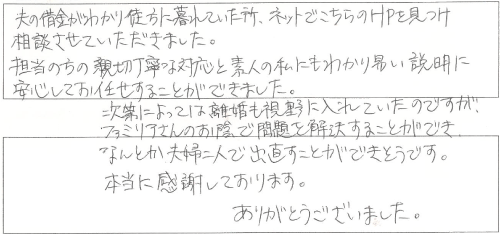 夫の借金がわかり途方に暮れていた所、ネットでこちらのHPを見つけ
相談させていただきました。
担当の方の親切丁寧な対応と素人の私にもわかり易い説明に
安心してお任せすることができました。
次第によっては離婚も視野に入れていたのですが、
ファミリアさんのお陰で問題を解決することができ、
なんとか夫婦二人で出直すことができそうです。
本当に感謝しております。
ありがとうございました。